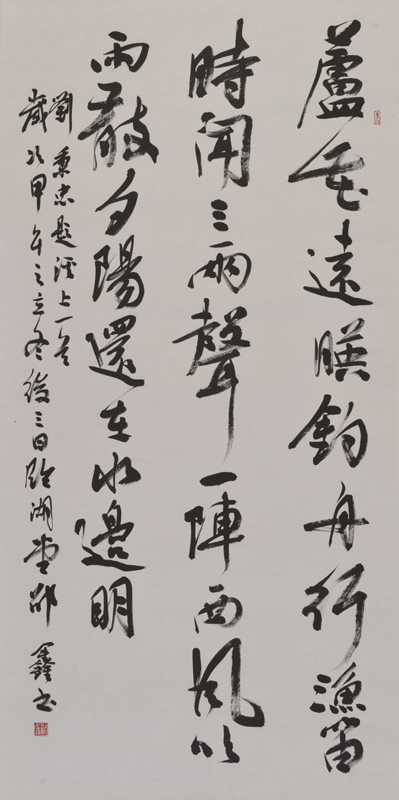 蘆花遠暎釣舟行漁笛
時聞三兩聲一陣西風吹
雨散夕陽還在水邊明
劉秉忠題溪上一首
歲次甲午之立冬後三日臨湖堂邵鑫書